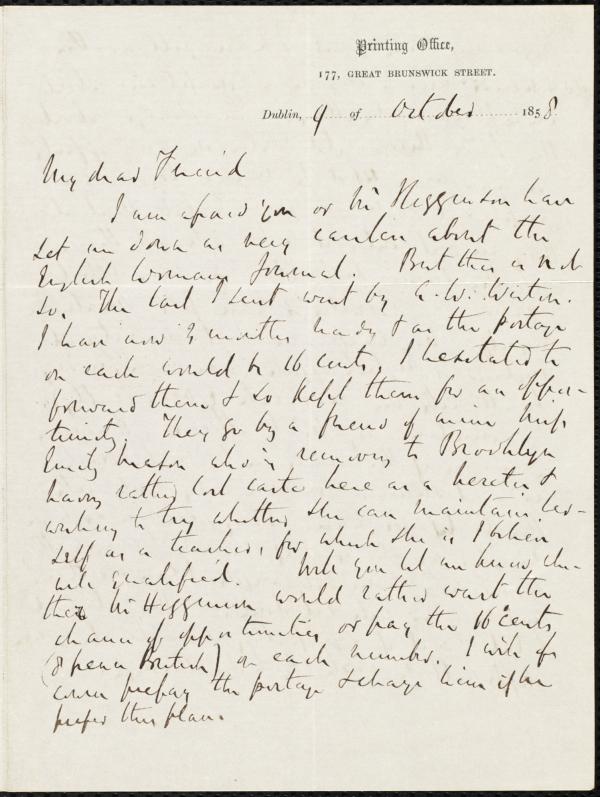 Printing Office,
177, GREAT BRUNSWICK STREET.
Dublin, 9 of October 1858
My dear Friend
I am afraid you or Mr Higginson have
set me down as very careless about the
English Womans Journal. But this is not
so. The last I sent went by G. W.
I have now 3 months ready & as the postage
on each would be 16 cents, I hesitated to
forward them & so kept them for an oppor-
tunity. They go by a friend of mine Miss
Emily who is removing to Brooklyn
having rather lost caste here as a heretic &
wishing to try whether she can maintain her-
self as a teacher, for which she is I believe
well qualified. Will you let me know whe-
ther Mr Higginson would rather want the
chance of opportunities or pay the 16 cents
(8 pence British) on each number. I will of
course prepay the postage & charge him if he
prefers this plan.